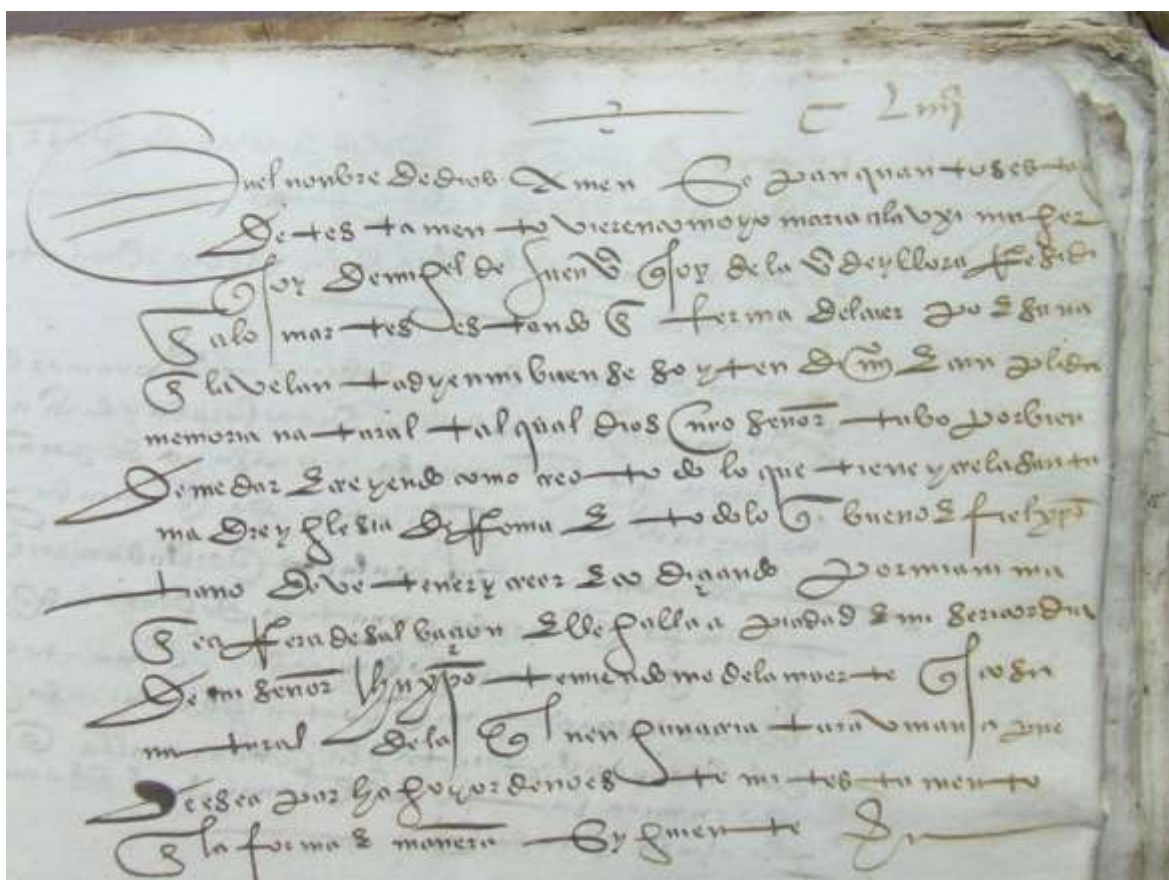 c Liiij
En el nonbre de dios Amen Sepan quantos esta
de testamento vieren como yo maria alauxi muger
que soy de miguel de fuen vº que soy de la vª de yllora
en alo martes estando en ferma del cuerpo e sana
en la veluntad y en mi buen seso y tendimyº e conplida
memoria natural tal qual dios nro señor tubo por bien
de me dar e creyendo como creo todo lo que tiene y cre la santa
madre yglesia de Roma e todo lo que bueno e fiel xpis
tiano deve tener y creer e cudiçiando por mi anima
en carrera de salbaçion e llegalla a piadad e misericordia
de mi señor Jhu xpo temiendome de la muerte que es cosa
natural de la que nenguna criatura vmana pue
de escapar hago y ordeno este mi testamento
en la forma e manera syguiente